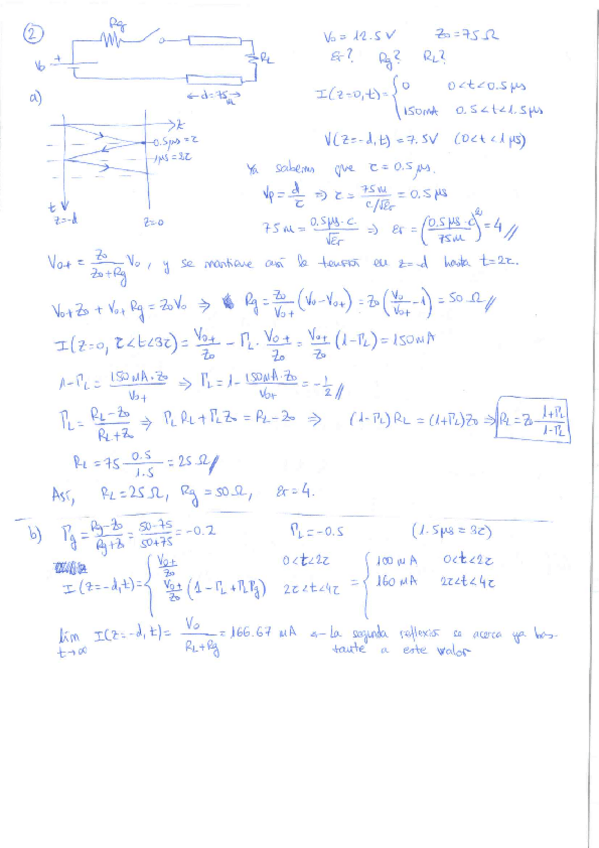 2
Rg
V0 +
RL
d=75m
V0 = 12.5V Z0 = 75Ω
εr? Rg? RL?
I(z=0,t) = { 0 0<t<0.5μs
150mA 0.5<t<1.5μs
V(z=-d,t) = 7.5V (0<t<1μs)
a)
z
0.5μs = τ
1μs = 2τ
t
z=-d z=0
Ya sabemos que τ = 0.5μs.
Vp = d/τ ⇒ τ = 75m/(c/√εr) = 0.5μs
75m = 0.5μs·c/√εr ⇒ εr = (0.5μs·c/75m)² = 4 //
V0+ = Z0/(Z0+Rg) V0, y se mantiene así la tensión en z=-d hasta t=2τ.
V0+Z0 + V0+Rg = Z0V0 ⇒ Rg = Z0/V0+ (V0-V0+) = Z0(V0/V0+ - 1) = 50Ω //
I(z=0, τ<t<3τ) = V0+/Z0 - ΓL·V0+/Z0 = V0+/Z0 (1-ΓL) = 150mA
1-ΓL = 150mA·Z0/V0+ ⇒ ΓL = 1 - 150mA·Z0/V0+ = -1/2 //
ΓL = (RL-Z0)/(RL+Z0) ⇒ ΓLRL + ΓLZ0 = RL-Z0 ⇒ (1-ΓL)RL = (1+ΓL)Z0 ⇒ RL = Z0 (1+ΓL)/(1-ΓL)
RL = 75 0.5/1.5 = 25Ω //
Así, RL = 25Ω, Rg = 50Ω, εr = 4.
b) Γg = (Rg-Z0)/(Rg+Z0) = (50-75)/(50+75) = -0.2 ΓL = -0.5 (1.5μs = 3τ)
I(z=-d,t) = { V0+/Z0 0<t<2τ = { 100mA 0<t<2τ
V0+/Z0 (1-ΓL+ΓLΓg) 2τ<t<4τ 160mA 2τ<t<4τ
lím t→∞ I(z=-d,t) = V0/(RL+Rg) = 166.67 mA ← La segunda reflexión se acerca ya bas-
tante a este valor